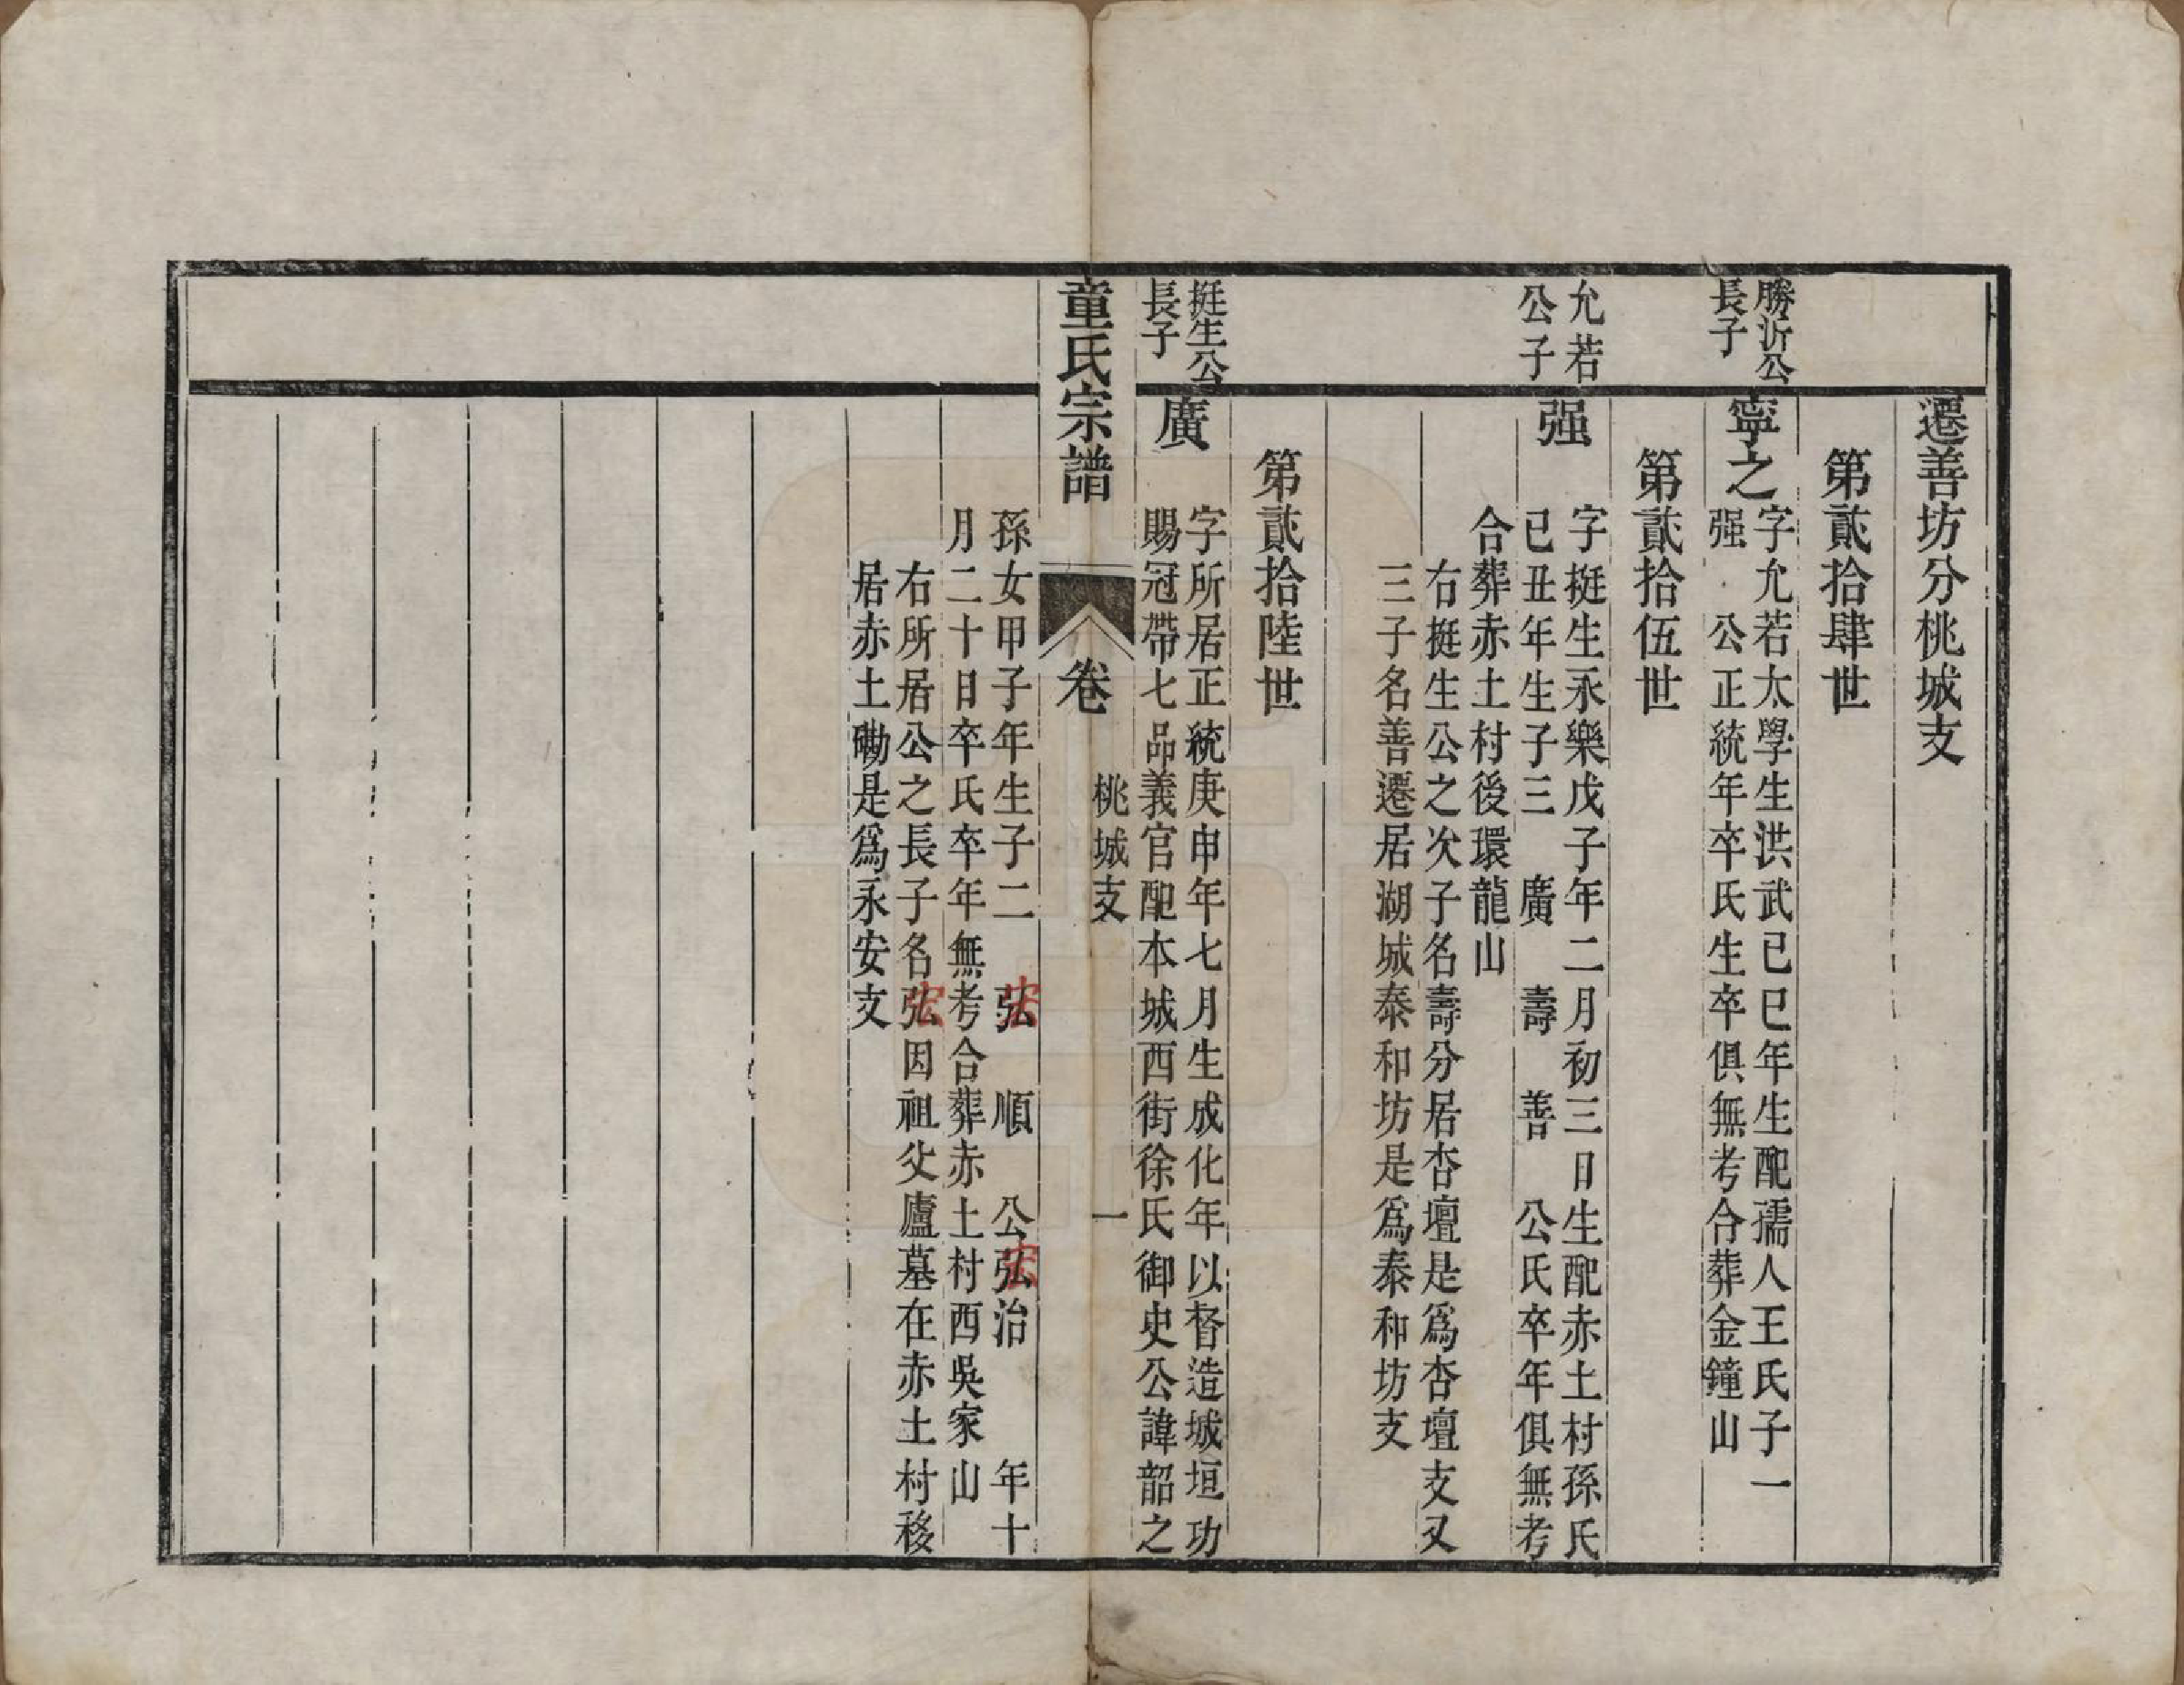 遷善坊分桃城支
第貳拾肆世
勝沂公
長子
寧之
字允若太學生洪武己巳年生配孺人王氏子一
强　公正統年卒氏生卒俱無考合葬金鐘山
第貳拾伍世
允若
公子
强
字挺生永樂戊子年二月初三日生配赤土村孫氏
己丑年生子三　廣　壽　善　公氏卒年俱無考
合葬赤土村後環龍山
右挺生公之次子名壽分居杏壇是爲杏壇支又
三子名善遷居湖城泰和坊是爲泰和坊支
第貳拾陸世
挺生公
長子
廣
字所居正統庚申年七月生成化年以督造城垣功
賜冠帶七品義官配本城西街徐氏御史公諱韶之
童氏宗譜　卷　桃城支　一
孫女甲子年生子二　弘　順　公弘治　年十
宏
宏
月二十日卒氏卒年無考合葬赤土村西吳家山
右所居公之長子名弘因祖父廬墓在赤土村移
宏
居赤土磡是爲永安支